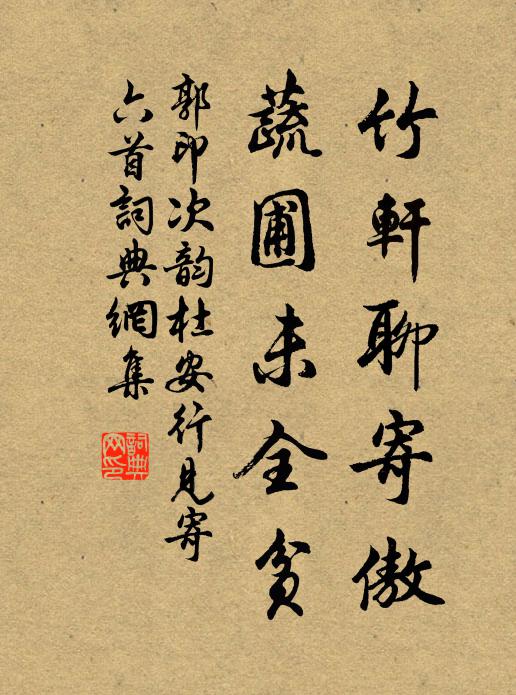 竹軒聊寄傲
蔬圃未全貧
郭印次韵杜安行見寄
六首詞典網集
詞典網印